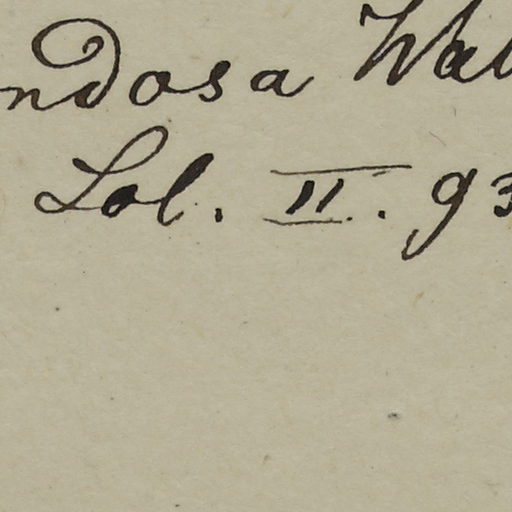 ndosa Wal
Lol. II. 93